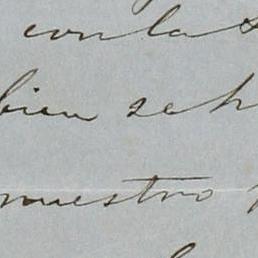 con las
bien se h
nuestro